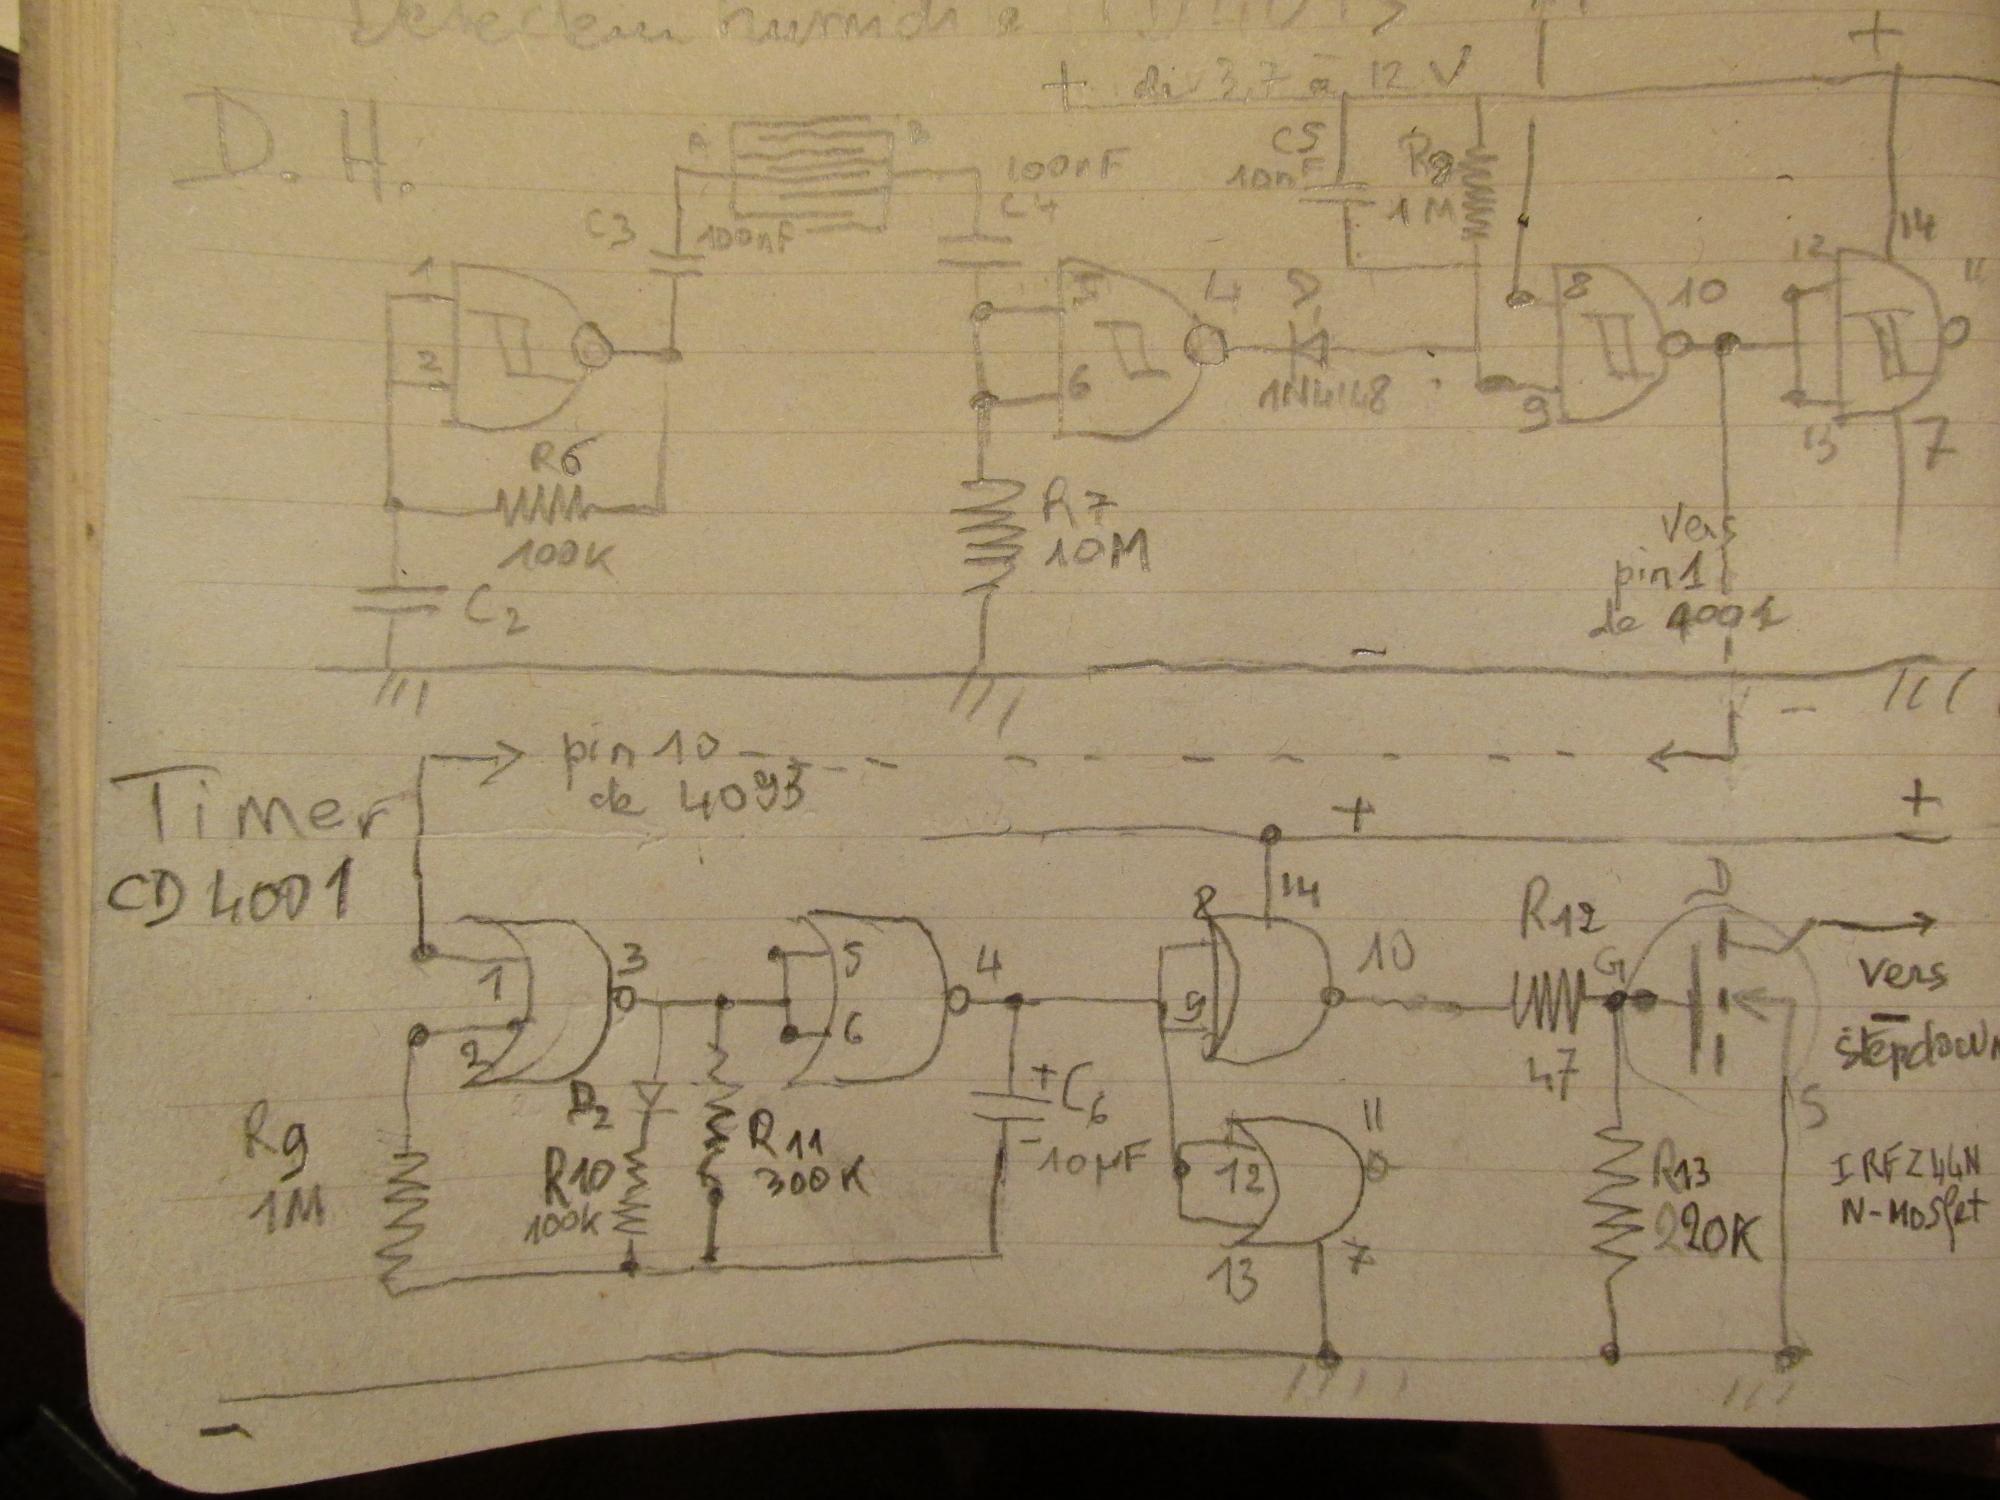 + di 3,7 à 12 V
+
D. H.
A
B
100nF
C4
C3
100nF
C5
10nF
R8
1M
14
12
11
1
2
5
6
4
D
1N4148
8
9
10
13
7
R6
100K
R7
10M
C2
Vers
pin 1
de 4001
-
-
Timer
CD4001
pin 10
de 4093
+
+
14
1
2
3
5
6
4
8
9
10
R12
47
G
D
S
vers
-
stepdown
R9
1M
D2
R10
100K
R11
300K
+
C6
-
10µF
12
13
11
7
R13
220K
IRFZ44N
N-Mosfet
-